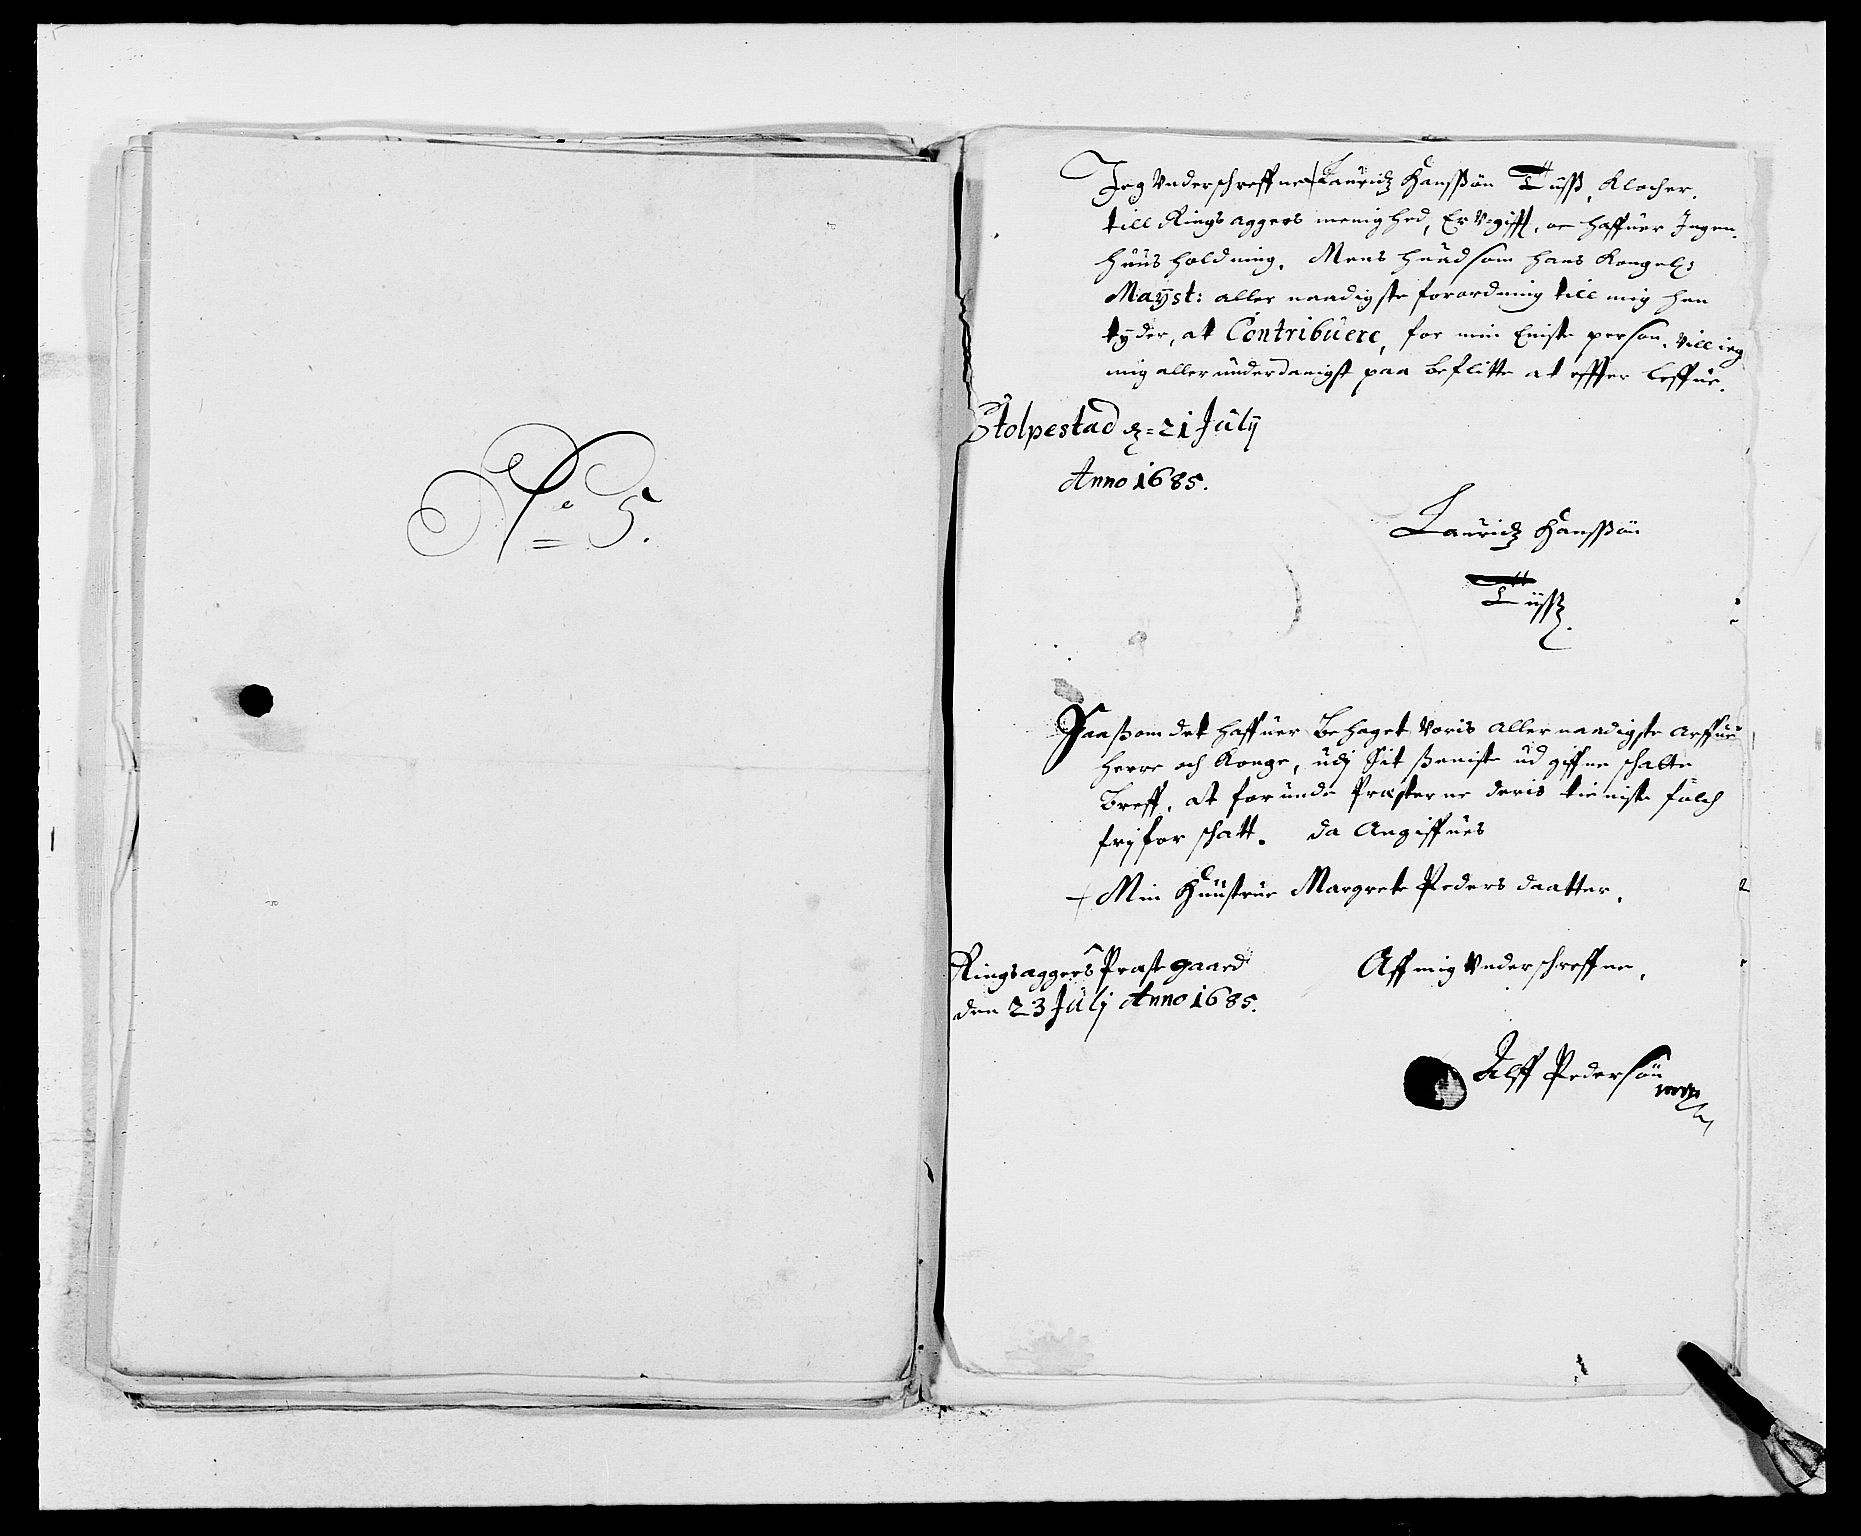 No 5.
Jeg Underschreffne Lauridz Hanssøn Tusß, Klocher.
till Ringsaggers menighed, Er Ugifft, oc haffuer Ingen
huusholdning. Mens huad som hans Kongel:
Mayst: aller naadigste forordning till mig hen
tyder, at Contribuere, for min Eniste person. Vill ieg
mig aller underdanigst paa beflitte at effter leffue.
Stolpestad d= 21 July
Anno 1685.
Lauridz Hanssøn
Tusß.
Saasom det haffuer Behaget Voris Aller naadigste Arffue
Herre och Konge, udj Sit seniste ud giffne schatte
Breff, at forunde Præsterne deris tieniste folch
frj for schatt. da Angiffues
Min Huustrue Margrete Peders daatter.
Ringsaggers Præstegaard
den 23 Julj Anno 1685.
Aff mig Underschreffne.
Alff Pedersøn